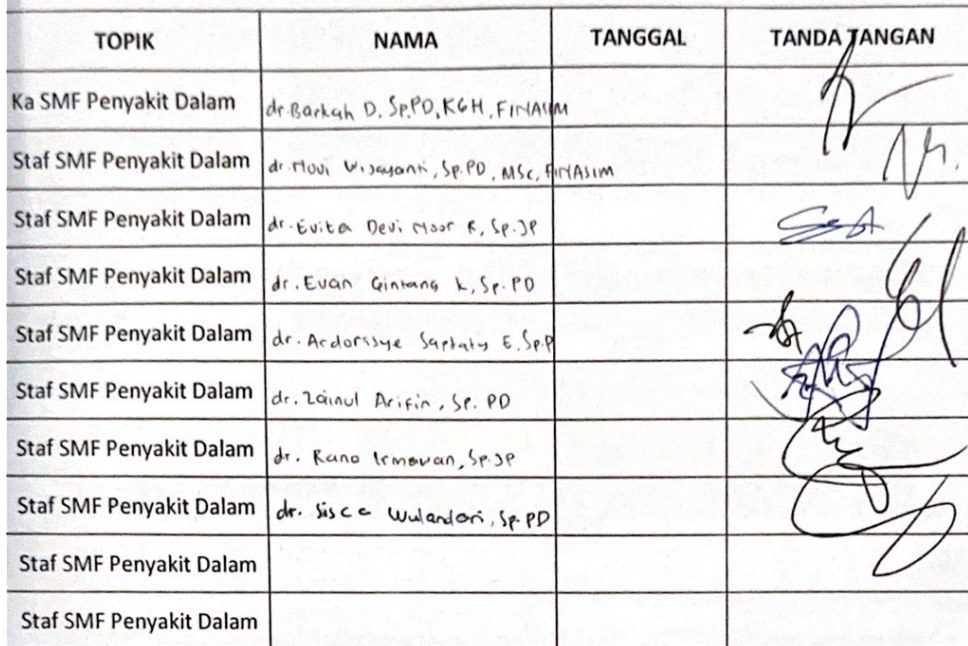 TOPIK NAMA TANGGAL TANDA TANGAN
Ka SMF Penyakit Dalam dr. Barkah D, Sp.PD, KGH, FINASIM
Staf SMF Penyakit Dalam dr. Novi Wijayanti, Sp.PD, MSc, FINASIM
Staf SMF Penyakit Dalam dr. Evita Devi Noor R, Sp.JP
Staf SMF Penyakit Dalam dr. Evan Gintang K, Sp.PD
Staf SMF Penyakit Dalam dr. E, Sp.P
Staf SMF Penyakit Dalam dr. Zainul Arifin, Sp. PD
Staf SMF Penyakit Dalam dr. Rano Irmawan, Sp.JP
Staf SMF Penyakit Dalam dr. Sisca Wulandari, Sp. PD
Staf SMF Penyakit Dalam
Staf SMF Penyakit Dalam